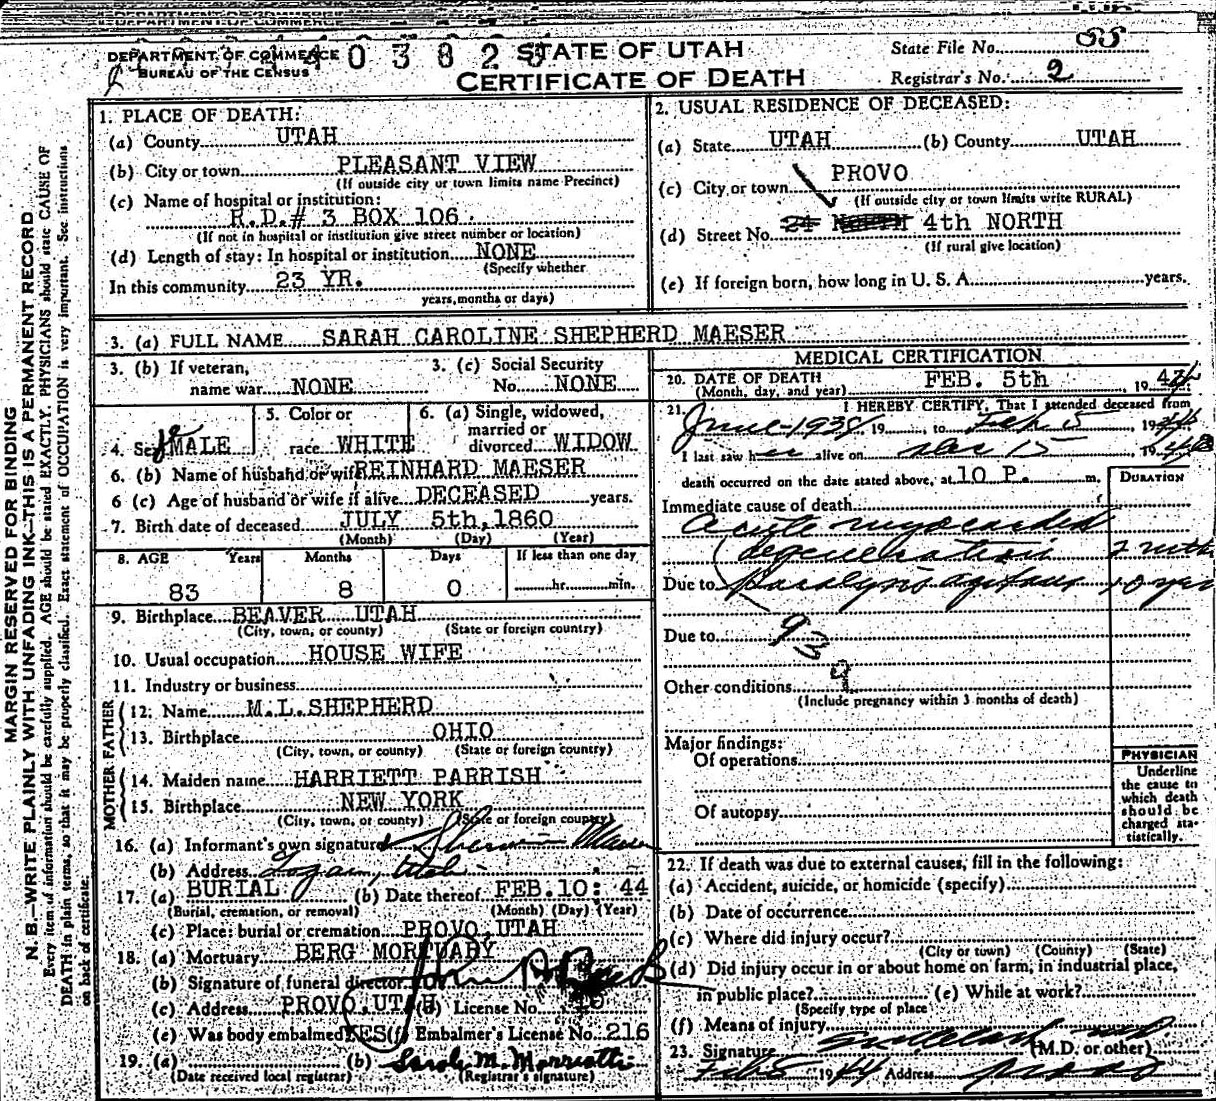 DEPARTMENT OF COMMERCE
BUREAU OF THE CENSUS
STATE OF UTAH
CERTIFICATE OF DEATH
State File No. 55
Registrar's No. 2
MARGIN RESERVED FOR BINDING
N. B.—WRITE PLAINLY WITH UNFADING INK—THIS IS A PERMANENT RECORD
Every item of information should be carefully supplied. AGE should be stated EXACTLY. PHYSICIANS should state CAUSE OF
DEATH in plain terms, so that it may be properly classified. Exact statement of OCCUPATION is very important. See instructions
on back of certificate.
1. PLACE OF DEATH:
(a) County UTAH
(b) City or town PLEASANT VIEW
(If outside city or town limits name Precinct)
(c) Name of hospital or institution:
R.D.# 3 BOX 106
(If not in hospital or institution give street number or location)
(d) Length of stay: In hospital or institution NONE
(Specify whether
In this community 23 YR.
years, months or days)
2. USUAL RESIDENCE OF DECEASED:
(a) State UTAH (b) County UTAH
(c) City or town PROVO
(If outside city or town limits write RURAL)
(d) Street No. 24 NORTH 4th NORTH
(If rural give location)
(e) If foreign born, how long in U. S. A. years.
3. (a) FULL NAME SARAH CAROLINE SHEPHERD MAESER
3. (b) If veteran,
name war NONE
3. (c) Social Security
No. NONE
4. Sex feMALE
5. Color or
race WHITE
6. (a) Single, widowed,
married or
divorced WIDOW
6. (b) Name of husband or wife REINHARD MAESER
6 (c) Age of husband or wife if alive DECEASED years.
7. Birth date of deceased JULY 5th, 1860
(Month) (Day) (Year)
8. AGE Years Months Days If less than one day
83 8 0 hr. min.
9. Birthplace BEAVER UTAH
(City, town, or county) (State or foreign country)
10. Usual occupation HOUSE WIFE
11. Industry or business
FATHER
12. Name M.L.SHEPHERD
13. Birthplace OHIO
(City, town, or county) (State or foreign country)
MOTHER
14. Maiden name HARRIETT PARRISH
15. Birthplace NEW YORK
(City, town, or county) (State or foreign country)
16. (a) Informant's own signature Sherwin Maeser
(b) Address Logan, Utah
17. (a) BURIAL (b) Date thereof FEB.10: 44
(Burial, cremation, or removal) (Month) (Day) (Year)
(c) Place: burial or cremation PROVO, UTAH
18. (a) Mortuary BERG MORTUARY
(b) Signature of funeral director
(c) Address PROVO, UTAH (d) License No.
(e) Was body embalmed YES (f) Embalmer's License No. 216
19. (a) (b) Sarah M. Morriotti
(Date received local registrar) (Registrar's signature)
MEDICAL CERTIFICATION
20. DATE OF DEATH FEB. 5th 1944
(Month, day, and year)
21. I HEREBY CERTIFY, That I attended deceased from
June 1938 19 to Feb 5 1944
I last saw her alive on Dec 15 1943
death occurred on the date stated above, at 10 P. m.
DURATION
Immediate cause of death
Acute myocardial
degeneration 2 mths
Due to Paralysis agitans 10 yrs
Due to 93 d
Other conditions
(Include pregnancy within 3 months of death)
Major findings:
Of operations
Of autopsy
PHYSICIAN
Underline
the cause to
which death
should be
charged sta-
tistically.
22. If death was due to external causes, fill in the following:
(a) Accident, suicide, or homicide (specify)
(b) Date of occurrence
(c) Where did injury occur?
(City or town) (County) (State)
(d) Did injury occur in or about home on farm, in industrial place,
in public place? (e) While at work?
(Specify type of place
(f) Means of injury
23. Signature (M.D. or other)
Feb 8 1944 Address Provo